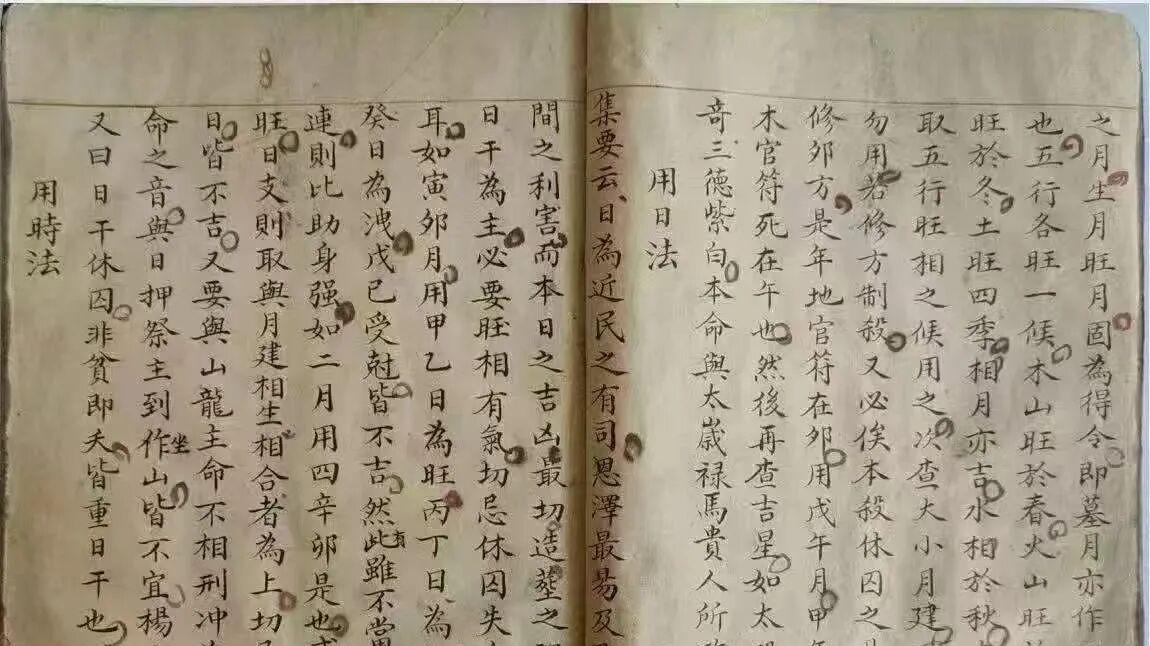 之月生月旺月固為得令即墓月亦作
也五行各旺一候木山旺於春火山旺
旺於冬土旺四季相月亦吉水相於秋
取五行旺相之候用之次查大小月建
勿用若修方制殺又必俟本殺休囚之
修夘方是年地官符在夘用戊午月甲
木官符死在午也然後再查吉星如太
竒三德紫白本命與太嵗禄馬貴人所
用日法
集要云日為近民之有司恩澤最易及
間之利害而本日之吉凶最切造塟之
日干為主必要旺相有氣切忌休囚失
耳如寅夘月用甲乙日為旺丙丁日為
癸日為洩戊己受尅皆不吉然此雖不當
連則比助身强如二月用四辛卯是也
旺日支則取與月建相生相合者為上切
日皆不吉又要與山龍主命不相刑冲
命之音與日押祭主到作坐山皆不宜楊
又曰日干休囚非貧即夭皆重日干也
用時法